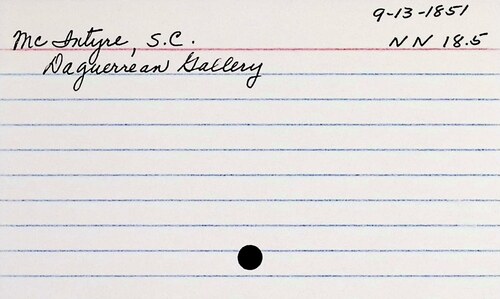 9-13-1851
Mc Intyre, S.C. NN 18.5
Daguerrean Gallery